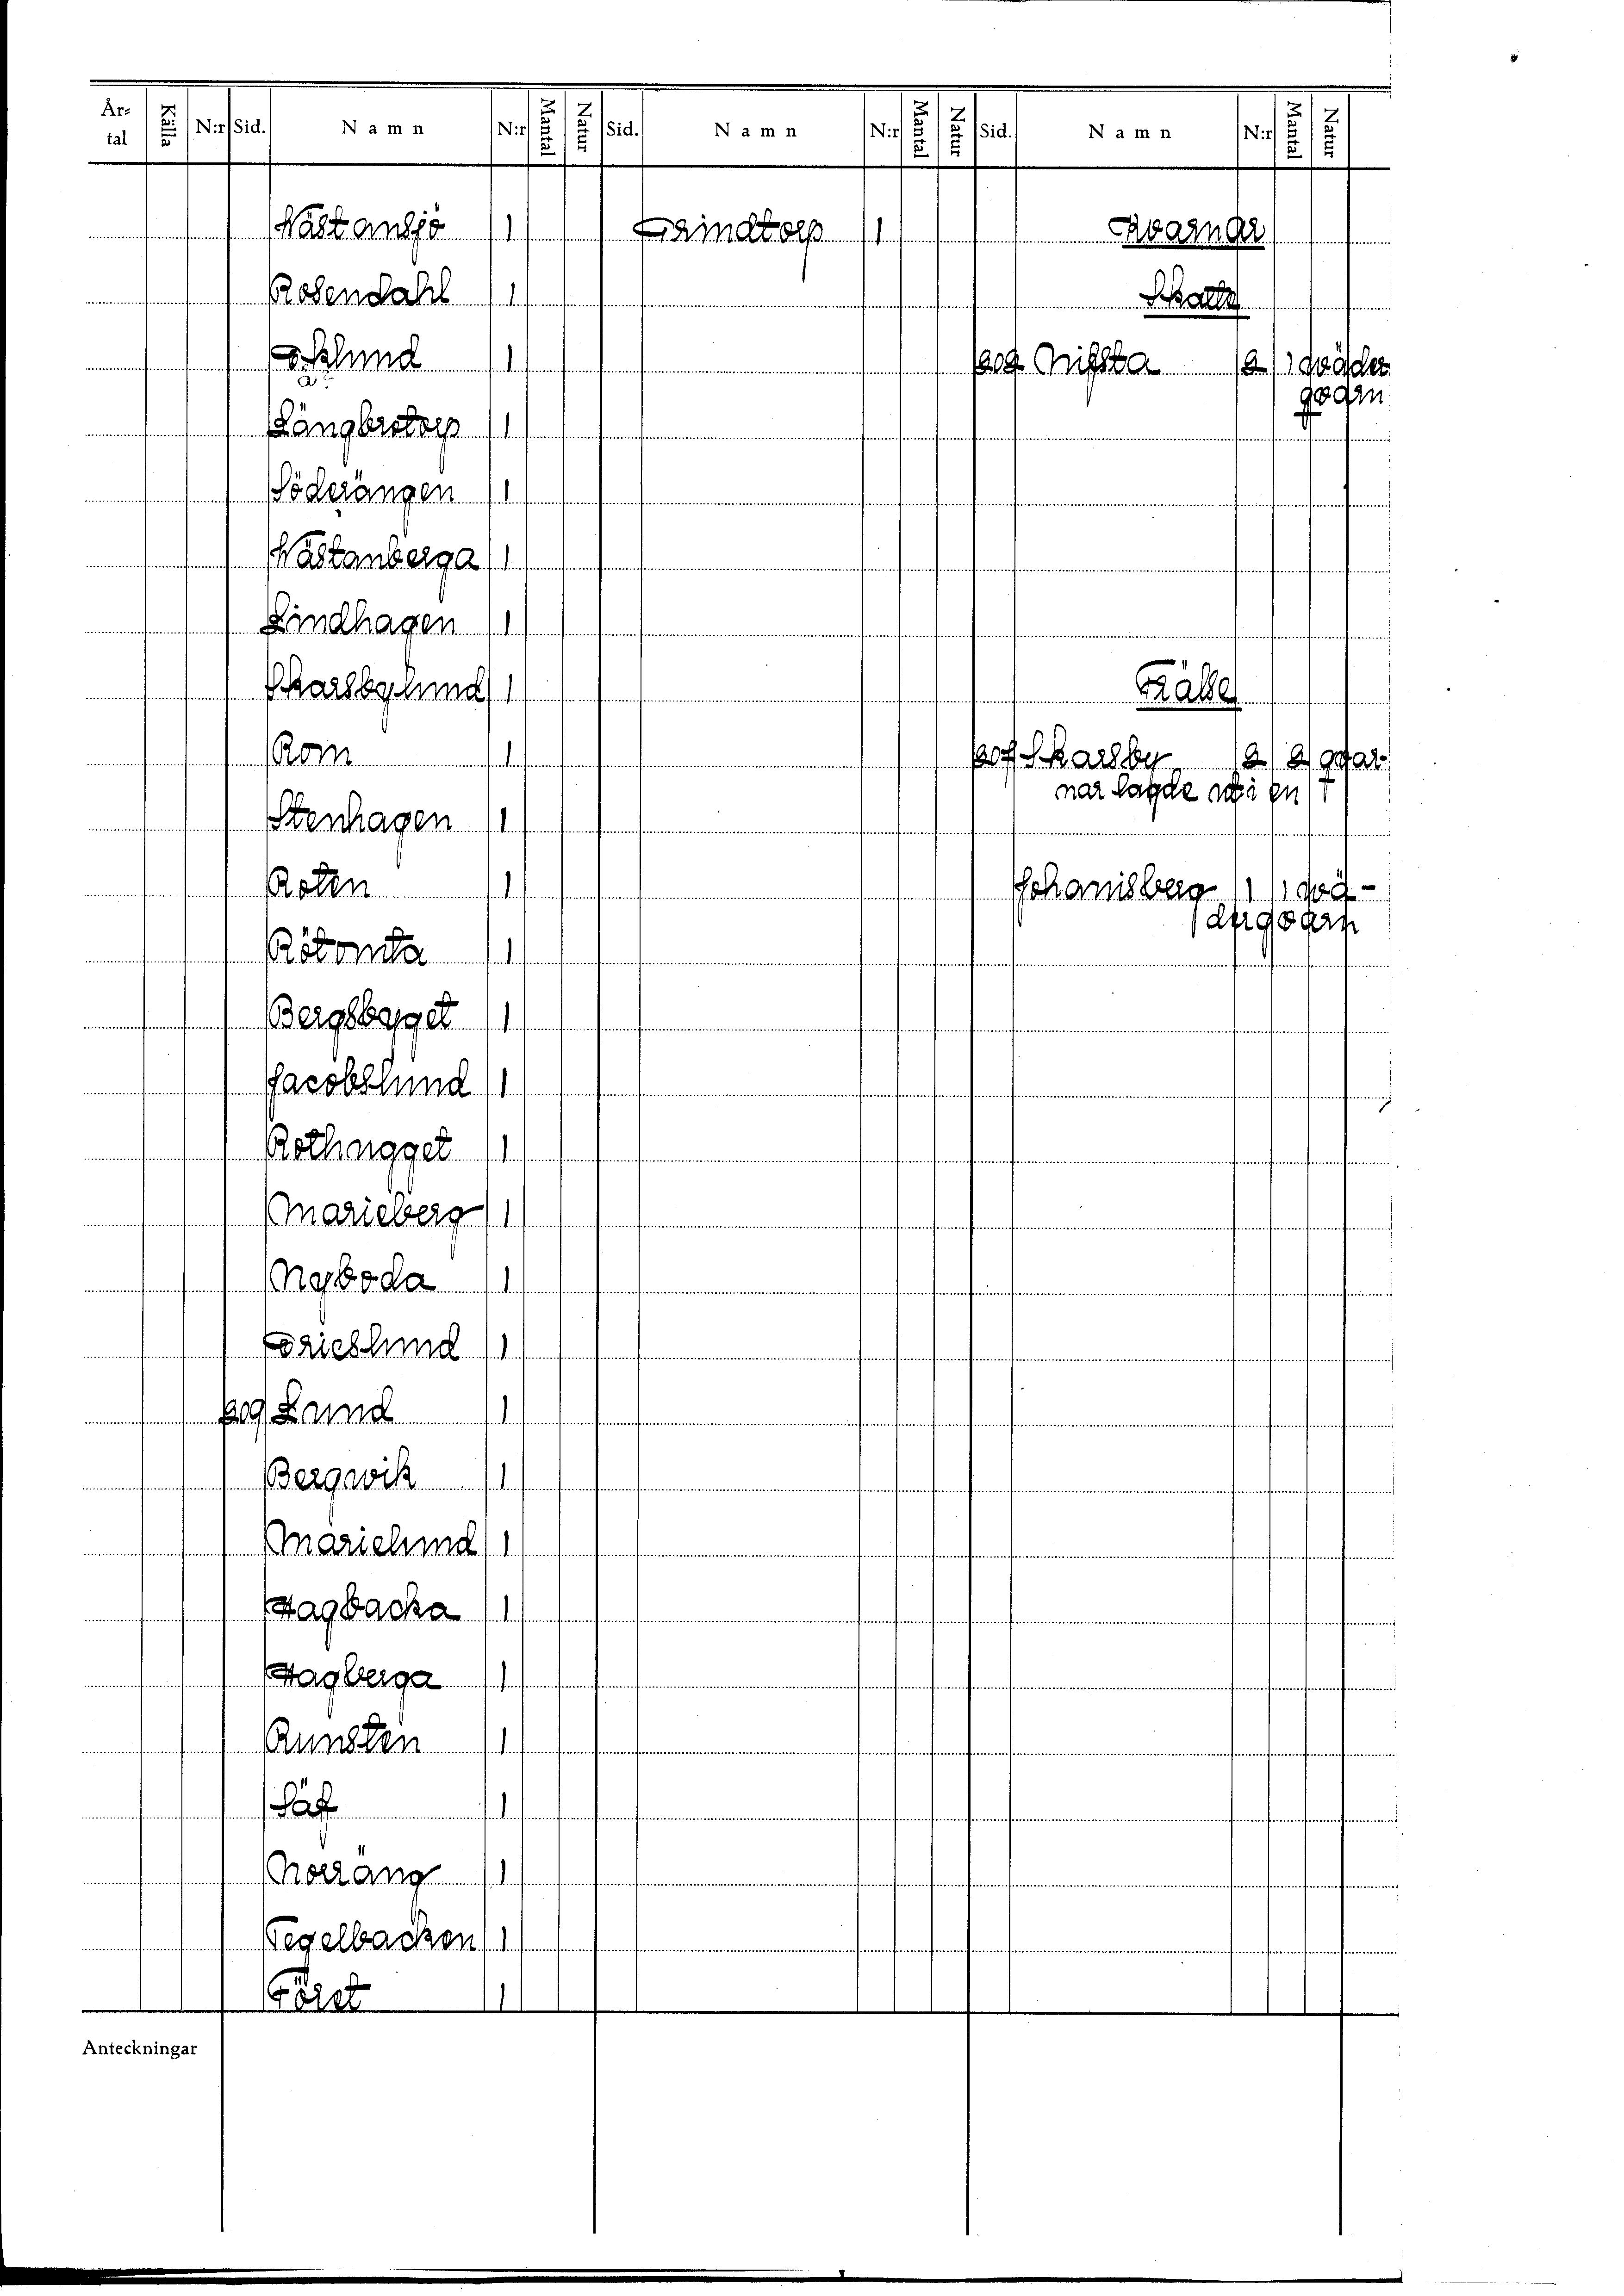 År-
tal
Källa
N:r
Sid.
Namn
N:r
Mantal
Natur
Sid.
Namn
N:r
Mantal
Natur
Sid.
Namn
N:r
Mantal
Natur
Wästansjö 1
Rosendahl 1
Eklund 1
a?
Långbrotorp 1
Söderängen 1
Wästanberga 1
Lindhagen 1
Skarsbylund 1
Rom 1
Stenhagen 1
Roten 1
Rötomta 1
Bergsbygget 1
Jacobslund 1
Rothugget 1
Marieberg 1
Nyboda 1
Ericslund 1
209 Lund 1
Bergwik 1
Marielund 1
Hagbacka 1
Hagberga 1
Runsten 1
Säf 1
Norräng 1
Tegelbacken 1
Föret 1
Grindtorp 1
Kvarnar
Skatte
202 Nifsta 2 1 wäder
qvarn
Frälse
207 Skarsby 2 2 qvar-
nar lagde i en
Johanisberg 1 1 wä-
derqvarn
Anteckningar